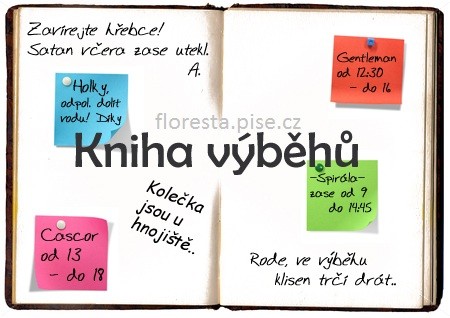 Zavírejte hřebce!
Satan včera zase utekl.
A.
Holky,
odpol. dolit
vodu! Díky
Gentleman
od 12:30
- do 16
floresta.pise.cz
Kniha výběhů
Kolečka
jsou u
hnojiště..
-Spirála-
zase od 9
do 14:45
Cascor
od 13
- do 18
Rode, ve výběhu
klisen trčí drát..